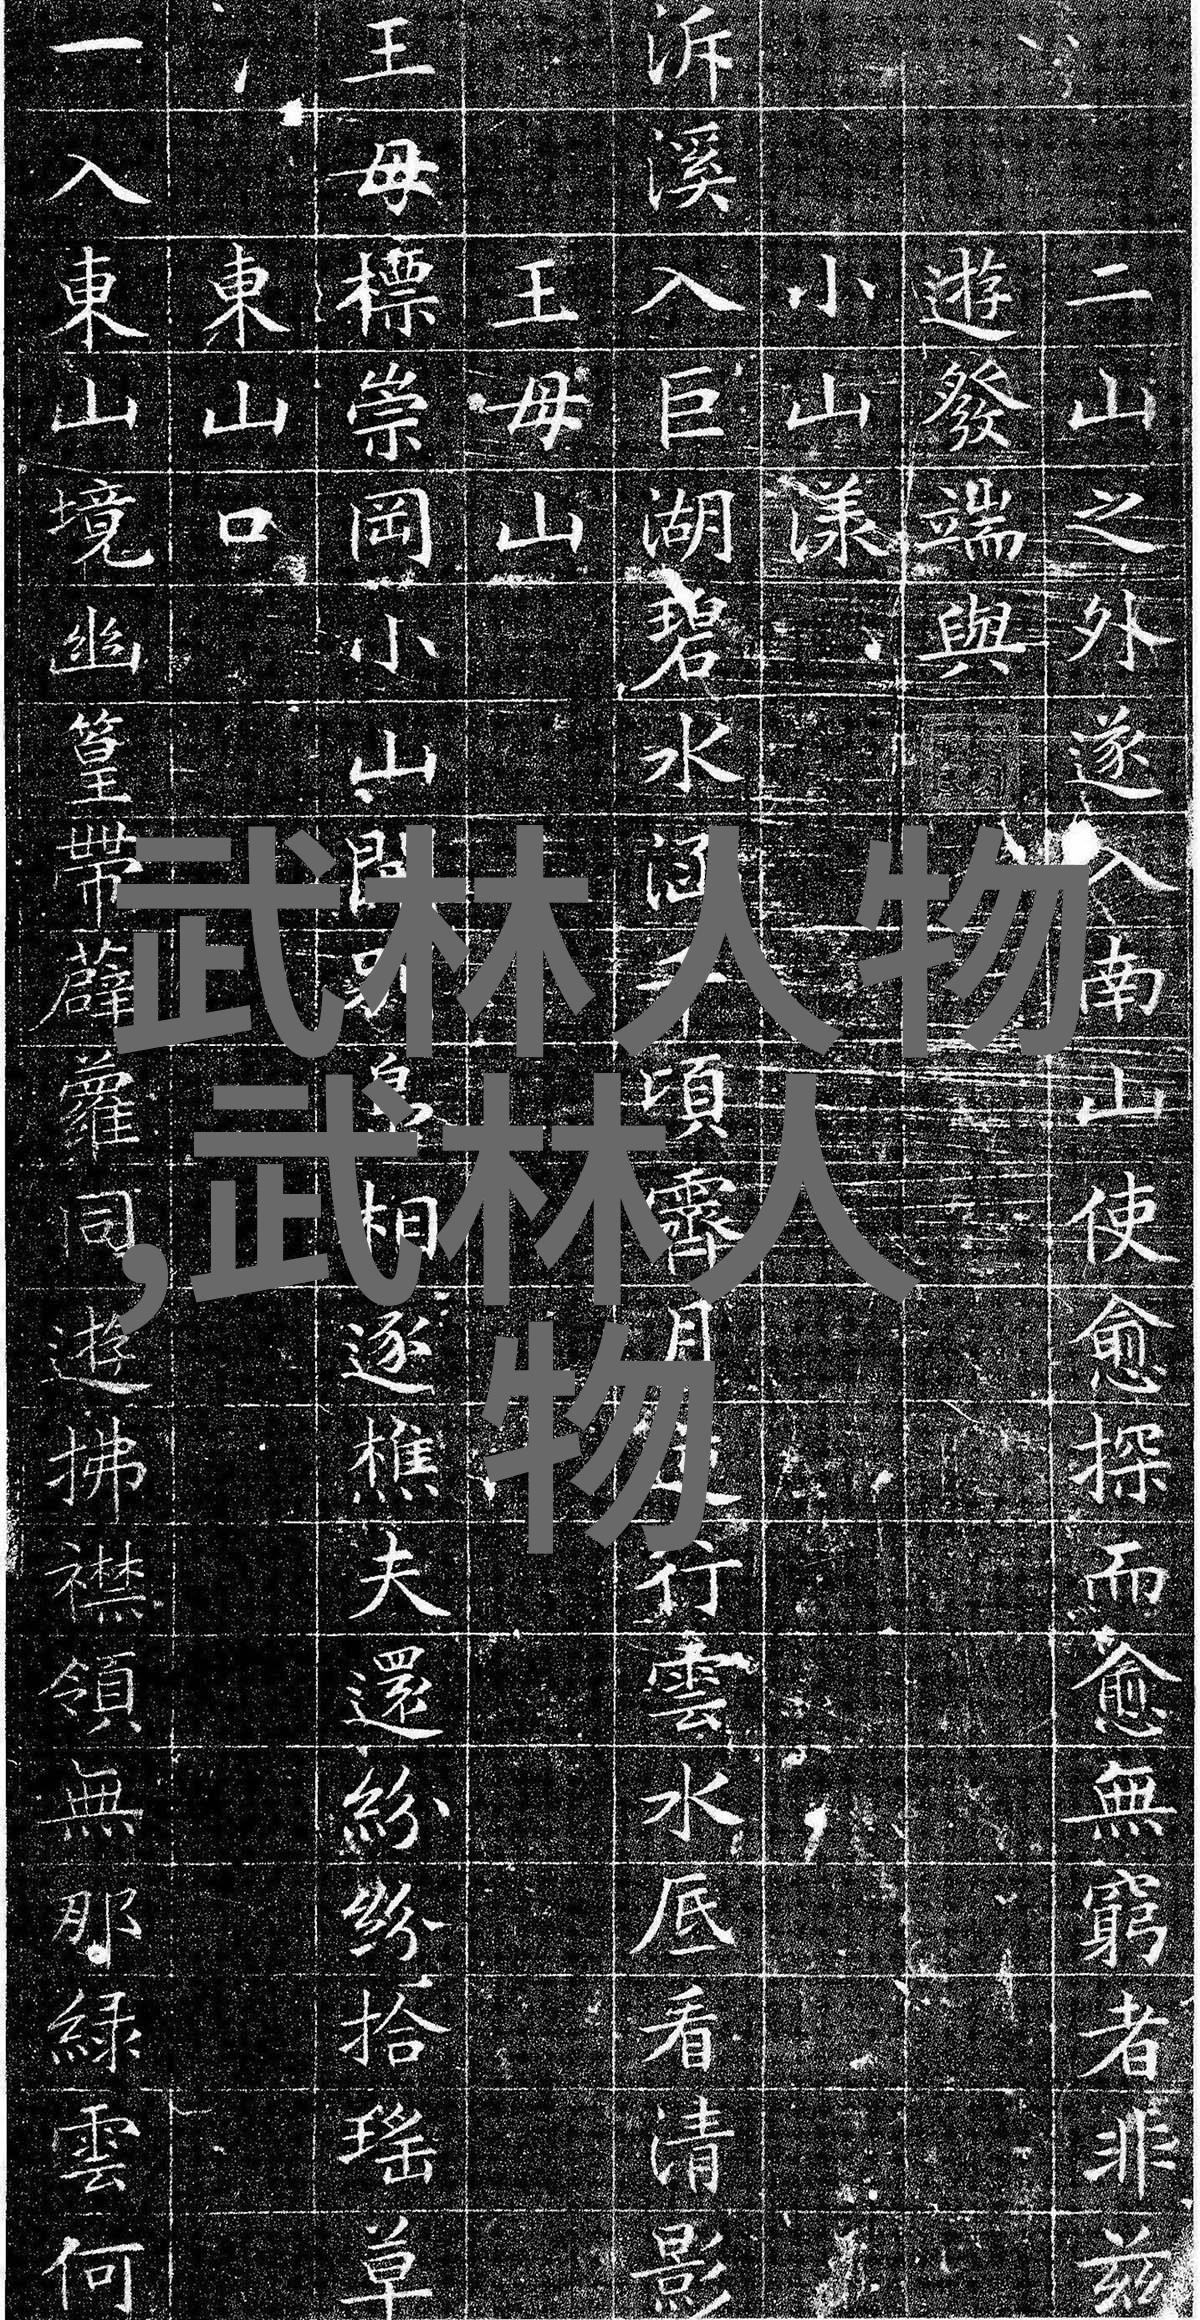 二山之外遂入南山使愈探而愈無窮者非茲
遊發端與
小山漾
泝溪入巨湖碧水涵千頃霽月逐行雲水底看清影
王母山
王母標崇岡小山閒別島相逐樵夫還紛紛拾瑤草
東山口
一入東山境幽篁帶薜蘿同遊拂襟領無那綠雲何
武林人物
,武林人
物